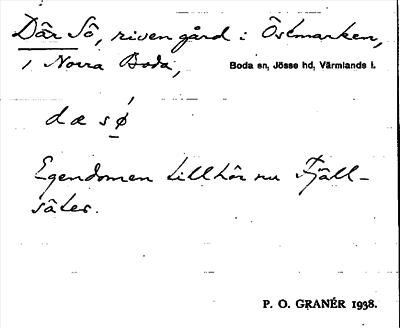 Där Sô, riven gård i Östmarken,
i Norra Boda,
Boda sn, Jösse hd, Värmlands l.
dæ sǿ
Egendomen tillhör nu Fjäll-
säter.
P. O. GRANÉR 1938.